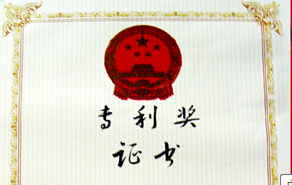 专利奖
证书